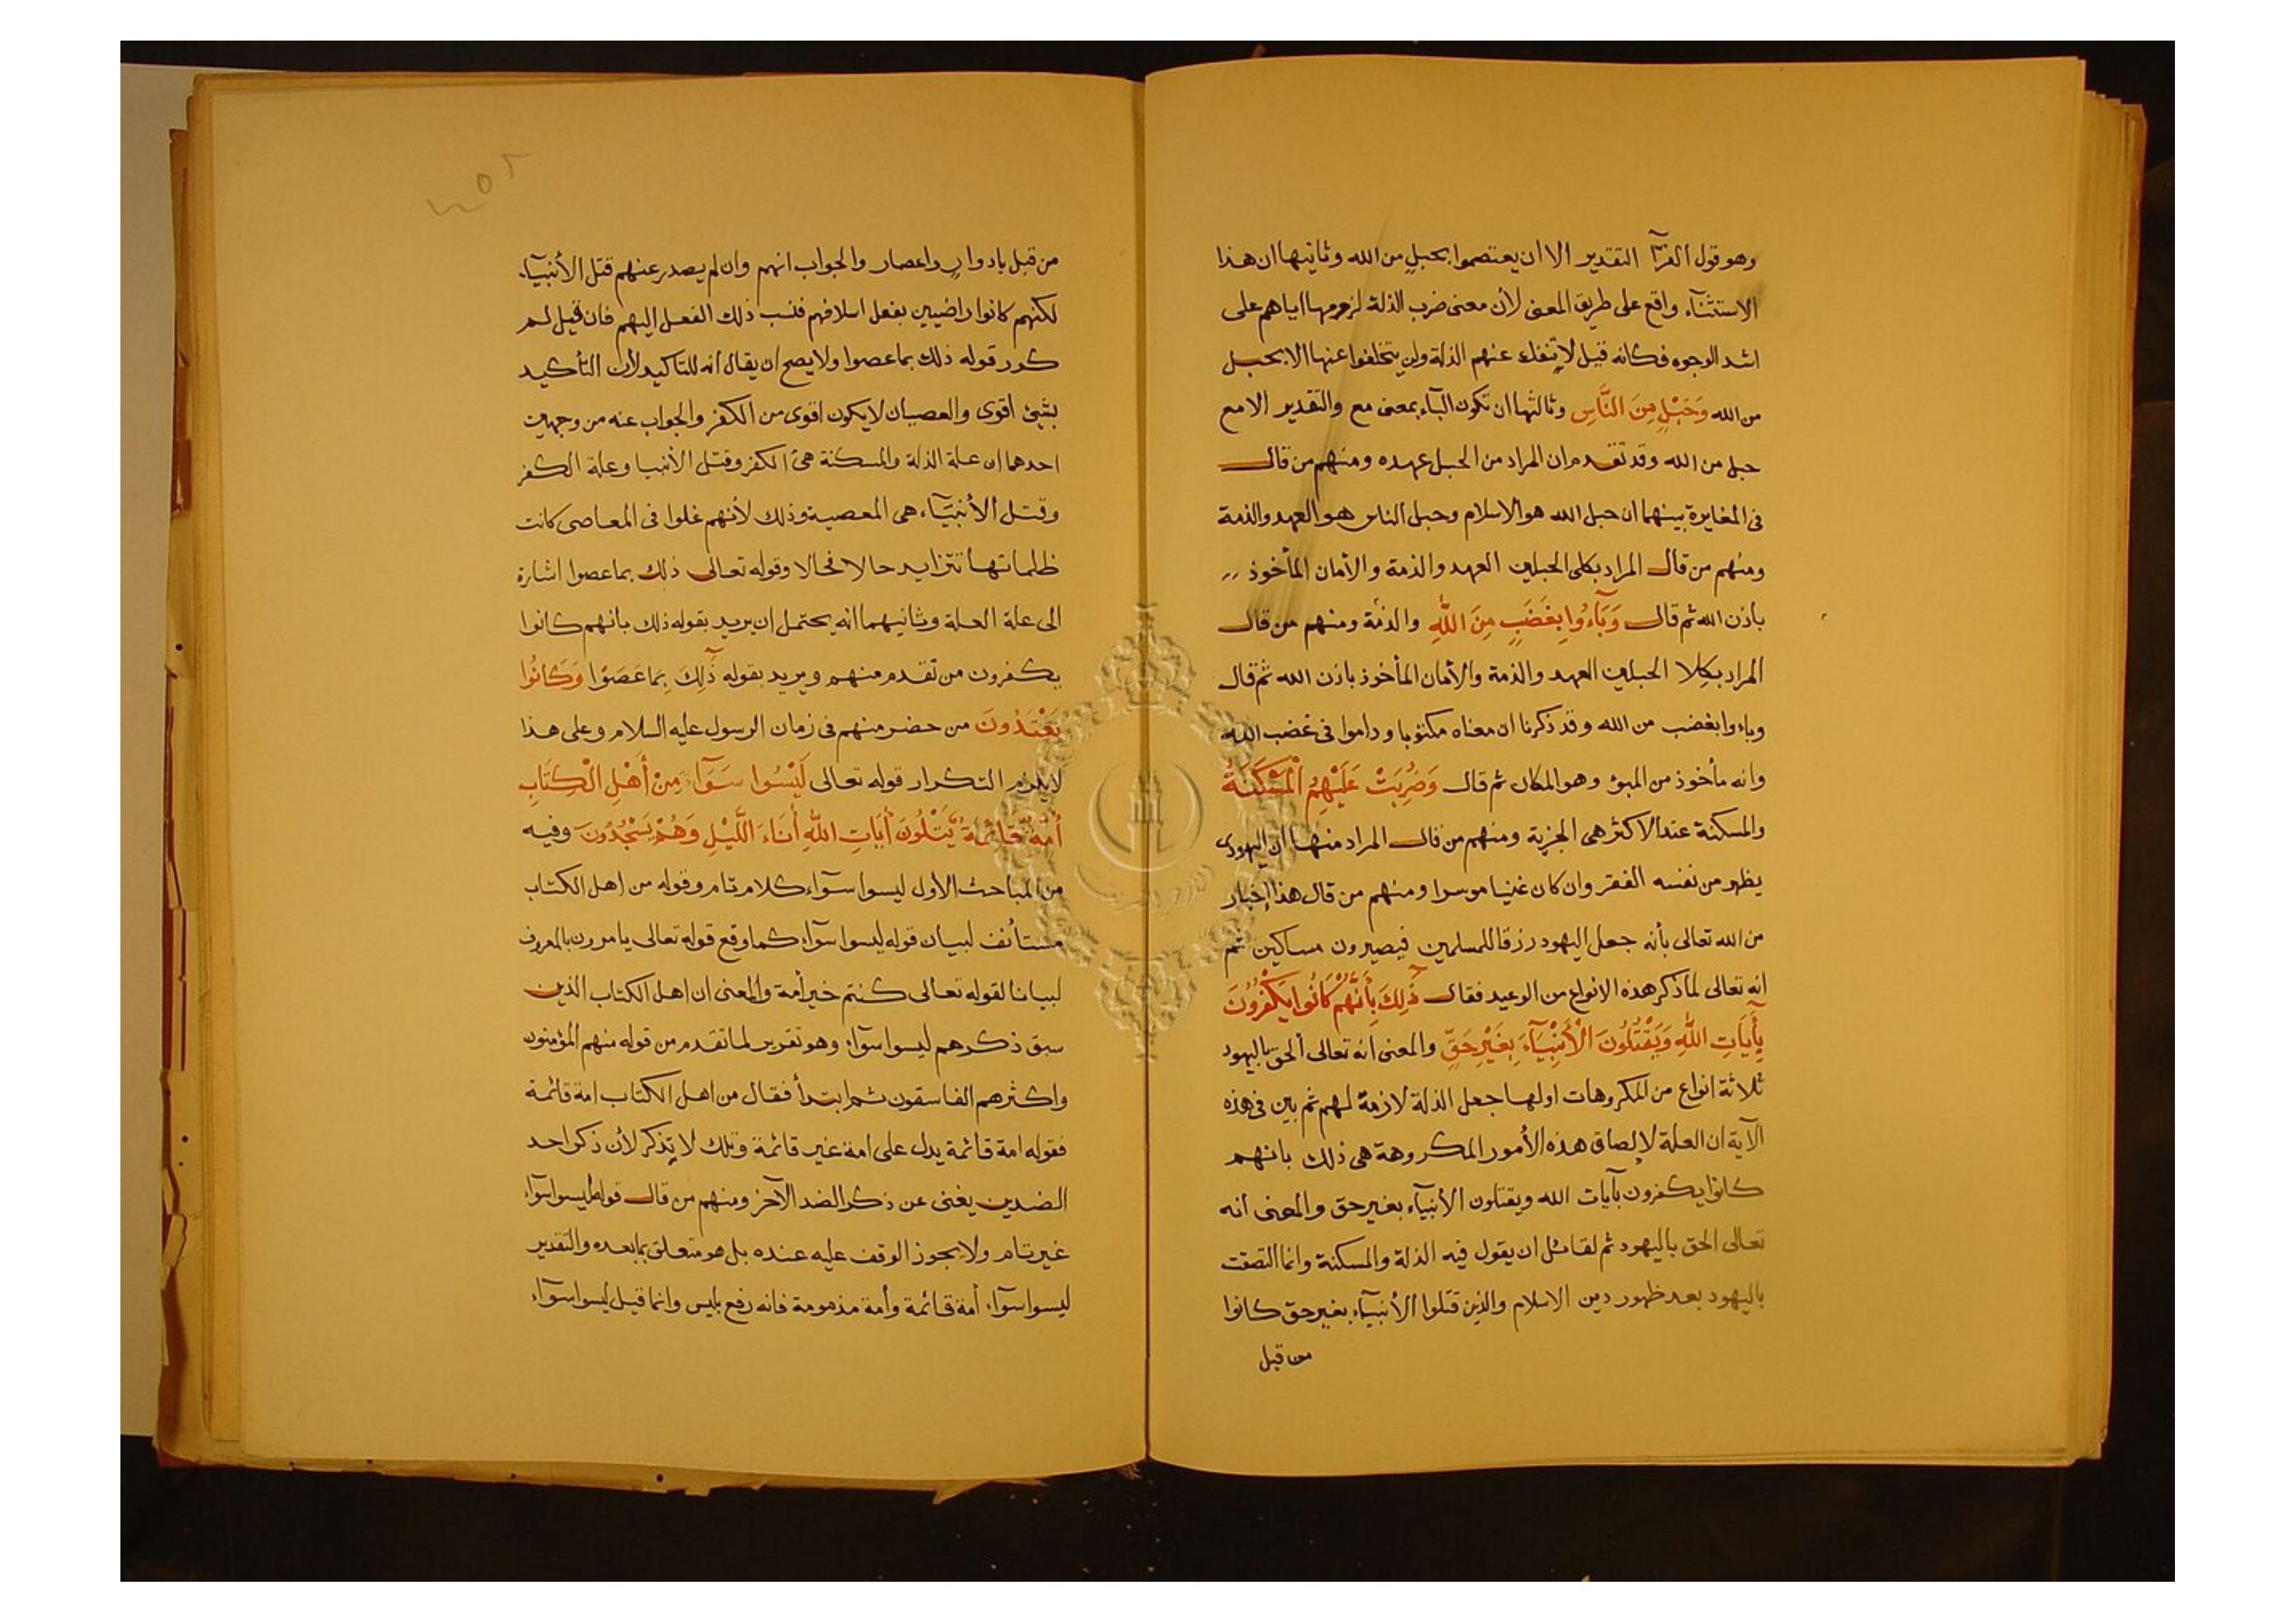 وهو قول الفرآ التقدير الا ان يعتصموا بحبل من الله وثانيها ان هذا
الاستثنآء واقع على طريق المعنى لأن معنى ضرب الذلة لزومها اياهم على
اشد الوجوه فكانه قيل لا تنفك عنهم الذلة ولن يتخلفوا عنها الا بحبل
من الله وَحَبْلٍ مِنَ النَّاسِ وثالثها ان تكون البآء بمعنى مع والتقدير الا مع
حبل من الله وقد تقدم ان المراد من الحبل عهده ومنهم من قال
فى المغايرة بينهما ان حبل الله هو الاسلام وحبل الناس هو العهد والذمة
ومنهم من قال المراد بكلى الحبلين العهد والذمة والأمان المأخوذ
باذن الله ثم قال وَبَآءُوا بِغَضَبٍ مِنَ اللَّهِ والذمة ومنهم من قال
المراد بكلا الحبلين العهد والذمة والأمان المأخوذ باذن الله ثم قال
وباءوا بغضب من الله وقد ذكرنا ان معناه مكثوا وداموا فى غضب الله
وانه مأخوذ من المبؤ وهو المكان ثم قال وَضُرِبَتْ عَلَيْهِمُ الْمَسْكَنَةُ
والمسكنة عند الاكثر هى الجزية ومنهم من قال المراد منها ان اليهودى
يظهر من نفسه الفقر وان كان غنيا موسرا ومنهم من قال هذا إخبار
من الله تعالى بأنه جعل اليهود رزقا للمسلمين فيصيرون مساكين ثم
انه تعالى لما ذكر هذه الانواع من الوعيد فقال ذَلِكَ بِأَنَّهُمْ كَانُوا يَكْفُرُونَ
بِأَيَاتِ اللَّهِ وَيَقْتُلُونَ الْأَنْبِيَآءَ بِغَيْرِ حَقٍّ والمعنى انه تعالى ألحق باليهود
ثلاثة انواع من المكروهات اولها جعل الذلة لازمة لهم ثم بين فى هذه
الآية ان العلة لإلصاق هذه الأمور المكروهة هى ذلك بانهم
كانوا يكفرون بآيات الله ويقتلون الأنبيآء بغير حق والمعنى انه
تعالى الحق باليهود ثم لقائل ان يقول فيه الذلة والمسكنة وانما التصقت
باليهود بعد ظهور دين الاسلام والذين قتلوا الأنبيآء بغير حق كانوا
من قبل
٢٥٢
من قبل بادوار واعصار والجواب انهم وان لم يصدر عنهم قتل الأنبيآء
لكنهم كانوا راضيين بفعل اسلافهم فنسب ذلك الفعل اليهم فان قيل لم
كرر قوله ذلك بما عصوا ولا يصح ان يقال انه للتاكيد لأن التأكيد
بشئ اقوى والعصيان لا يكون اقوى من الكفر والجواب عنه من وجهين
احدهما ان علة الذلة والمسكنة هى الكفر وقتل الأنبيا وعلة الكفر
وقتل الأنبيآء هى المعصية وذلك لأنهم غلوا فى المعاصى كانت
ظلماتها تتزايد حالا فحالا وقوله تعالى ذلك بما عصوا اشارة
الى علة العلة وثانيهما انه يحتمل ان يريد بقوله ذلك بانهم كانوا
يكفرون من تقدم منهم ويريد بقوله ذَلِكَ بِمَا عَصَوْا وَكَانُوا
يَعْتَدُونَ من حضر منهم فى زمان الرسول عليه السلام وعلى هذا
لا يلزم التكرار قوله تعالى لَيْسُوا سَوَآءً مِنْ أَهْلِ الْكِتَابِ
أُمَّةٌ قَائِمَةٌ يَتْلُونَ أَيَاتِ اللَّهِ أَنَاءَ اللَّيْلِ وَهُمْ يَسْجُدُونَ وفيه
من المباحث الأول ليسوا سوآء كلام تام وقوله من اهل الكتاب
مستأنف لبيان قوله ليسوا سوآء كما وقع قوله تعالى يامرون بالمعروف
لبيانا لقوله تعالى كنتم خير أمة والمعنى ان اهل الكتاب الذين
سبق ذكرهم ليسوا سوآء وهو تقرير لما تقدم من قوله منهم المؤمنون
واكثرهم الفاسقون ثم ابتدأ فقال من اهل الكتاب امة قائمة
فقوله امة قائمة يدل على امة غير قائمة وتلك لا يذكر لأن ذكر احد
الضدين يغنى عن ذكر الضد الآخر ومنهم من قال قوله ليسوا سوآء
غير تام ولا يجوز الوقف عليه عنده بل هو متعلق بما بعده والتقدير
ليسوا سوآء أمة قائمة وأمة مذمومة فانه رفع بليس وانما قيل ليسوا سوآء